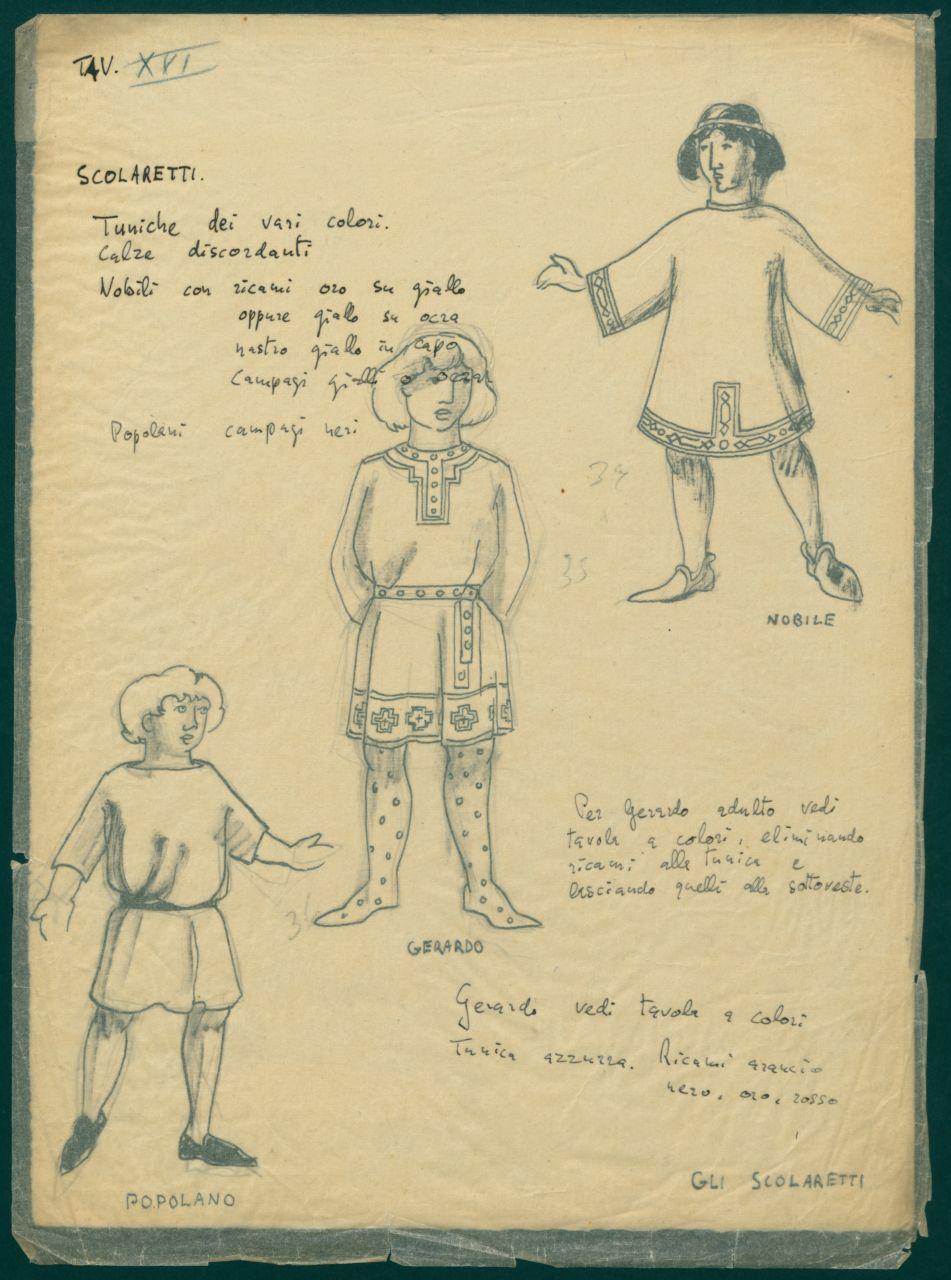 TAV. XVI
SCOLARETTI.
Tuniche dei vari colori.
Calze discordanti
Nobili con ricami oro su giallo
oppure giallo su ocra
nastro giallo in capo
Campagi gialli o ocra
Popolani campagi neri
34
35
NOBILE
Per Gerardo adulto vedi
tavola a colori, eliminando
ricami alla tunica e
lasciando quelli alla sottoveste.
GERARDO
Gerardo vedi tavola a colori
Tunica azzurra. Ricami arancio
nero, oro, rosso
GLI SCOLARETTI
POPOLANO